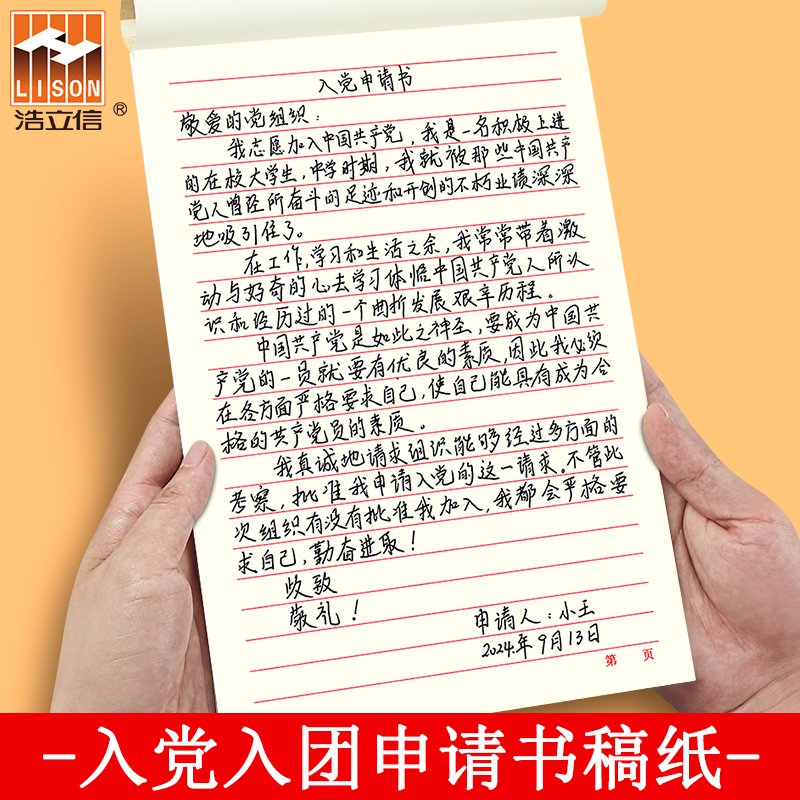 LISON
浩立信®
入党申请书
敬爱的党组织：
我志愿加入中国共产党，我是一名积极上进
的在校大学生，中学时期，我就被那些中国共产
党人曾经所奋斗的足迹和开创的不朽业绩深深
地吸引住了。
在工作，学习和生活之余，我常常带着激
动与好奇的心去学习体悟中国共产党人所认
识和经历过的一个曲折发展艰辛历程。
中国共产党是如此之神圣，要成为中国共
产党的一员就要有优良的素质，因此我必须
在各方面严格要求自己，使自己能具有成为合
格的共产党员的素质。
我真诚地请求组织能够经过多方面的
考察，批准我申请入党的这一请求。不管此
次组织有没有批准我加入，我都会严格要
求自己，勤奋进取！
此致
敬礼！
申请人：小王
2024年9月13日
第 页
-入党入团申请书稿纸-